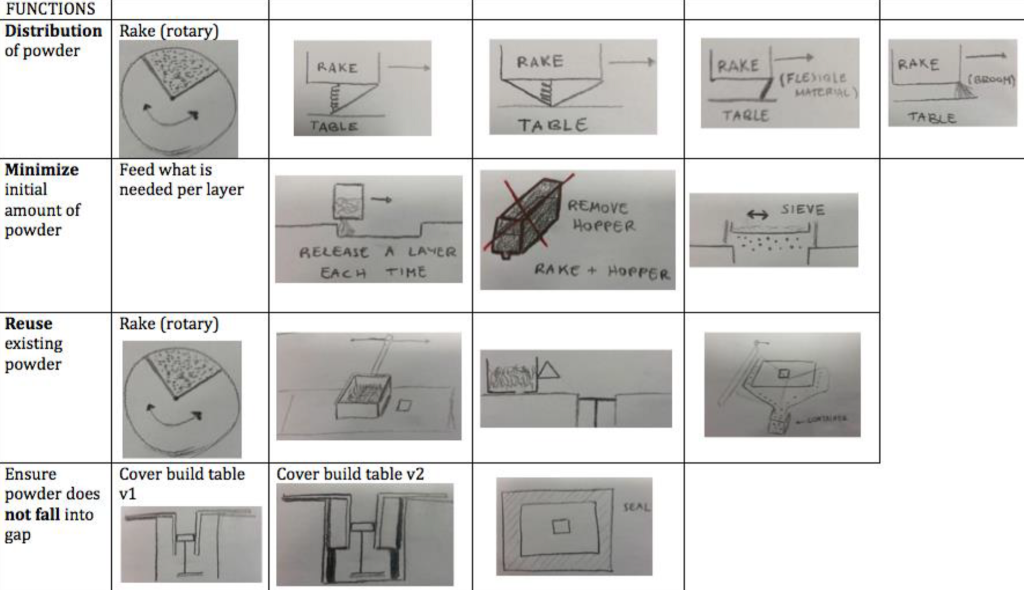 FUNCTIONS
Distribution
of powder
Rake (rotary)
RAKE
TABLE
RAKE
TABLE
RAKE
(FLEXIBLE
MATERIAL)
TABLE
RAKE
(BROOM)
TABLE
Minimize
initial
amount of
powder
Feed what is
needed per layer
RELEASE A LAYER
EACH TIME
REMOVE
HOPPER
RAKE + HOPPER
SIEVE
Reuse
existing
powder
Rake (rotary)
CONTAINER
Ensure
powder does
not fall into
gap
Cover build table
v1
Cover build table v2
SEAL